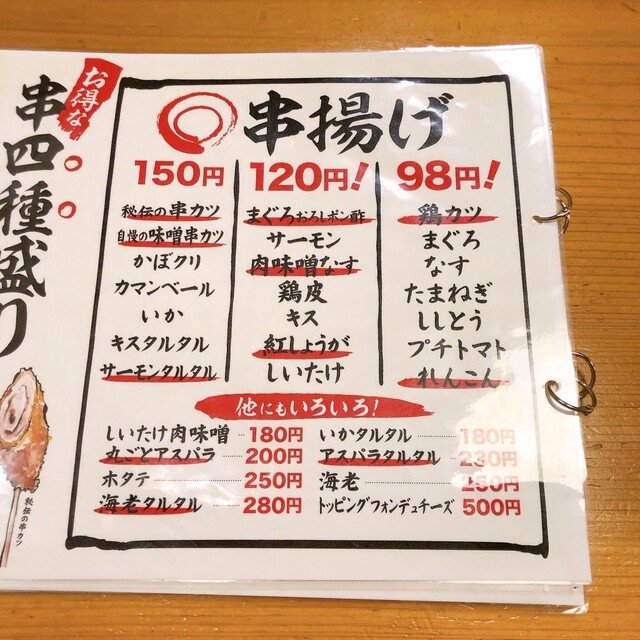 お得な
串四種盛り
秘伝の串カツ
串揚げ
150円
秘伝の串カツ
自慢の味噌串カツ
かぼクリ
カマンベール
いか
キスタルタル
サーモンタルタル
120円!
まぐろおろしポン酢
サーモン
肉味噌なす
鶏皮
キス
紅しょうが
しいたけ
98円!
鶏カツ
まぐろ
なす
たまねぎ
ししとう
プチトマト
れんこん
他にもいろいろ!
しいたけ肉味噌 180円
丸ごとアスパラ 200円
ホタテ 250円
海老タルタル 280円
いかタルタル 180円
アスパラタルタル 230円
海老 250円
トッピングフォンデュチーズ 500円